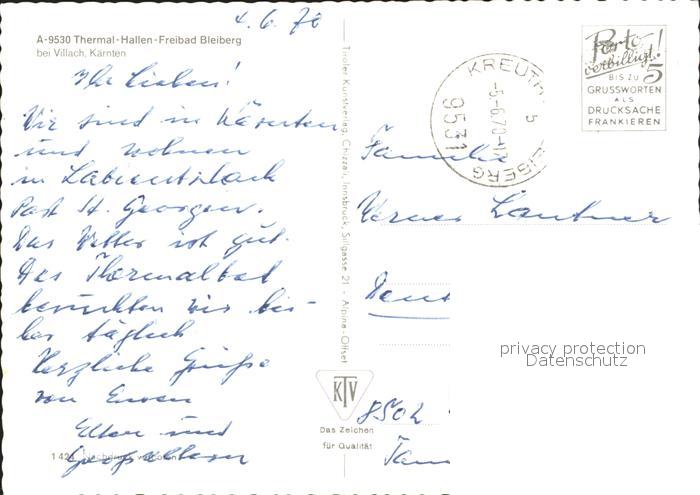 4.6.70
A-9530 Thermal-Hallen-Freibad Bleiberg
bei Villach, Kärnten
Ihr Lieben!
Wir sind in Kärnten
und wohnen
in
Post St. Georgen.
Das Wetter ist gut.
Das Thermalbad
besuchten wir bis-
her täglich
Herzliche Grüße
von Euren
Eltern und
Großeltern
1 424
Tiroler Kunstverlag Chizzali, Innsbruck, Sillgasse 21 - Alpina-Offset
KTV
Das Zeichen
für Qualität
KREUTH
-5.-6.70-17
9531
EIBERG
Porto
verbilligt!
BIS ZU 5
GRUSSWORTEN
ALS
DRUCKSACHE
FRANKIEREN
Familie
Werner
8502
privacy protection
Datenschutz